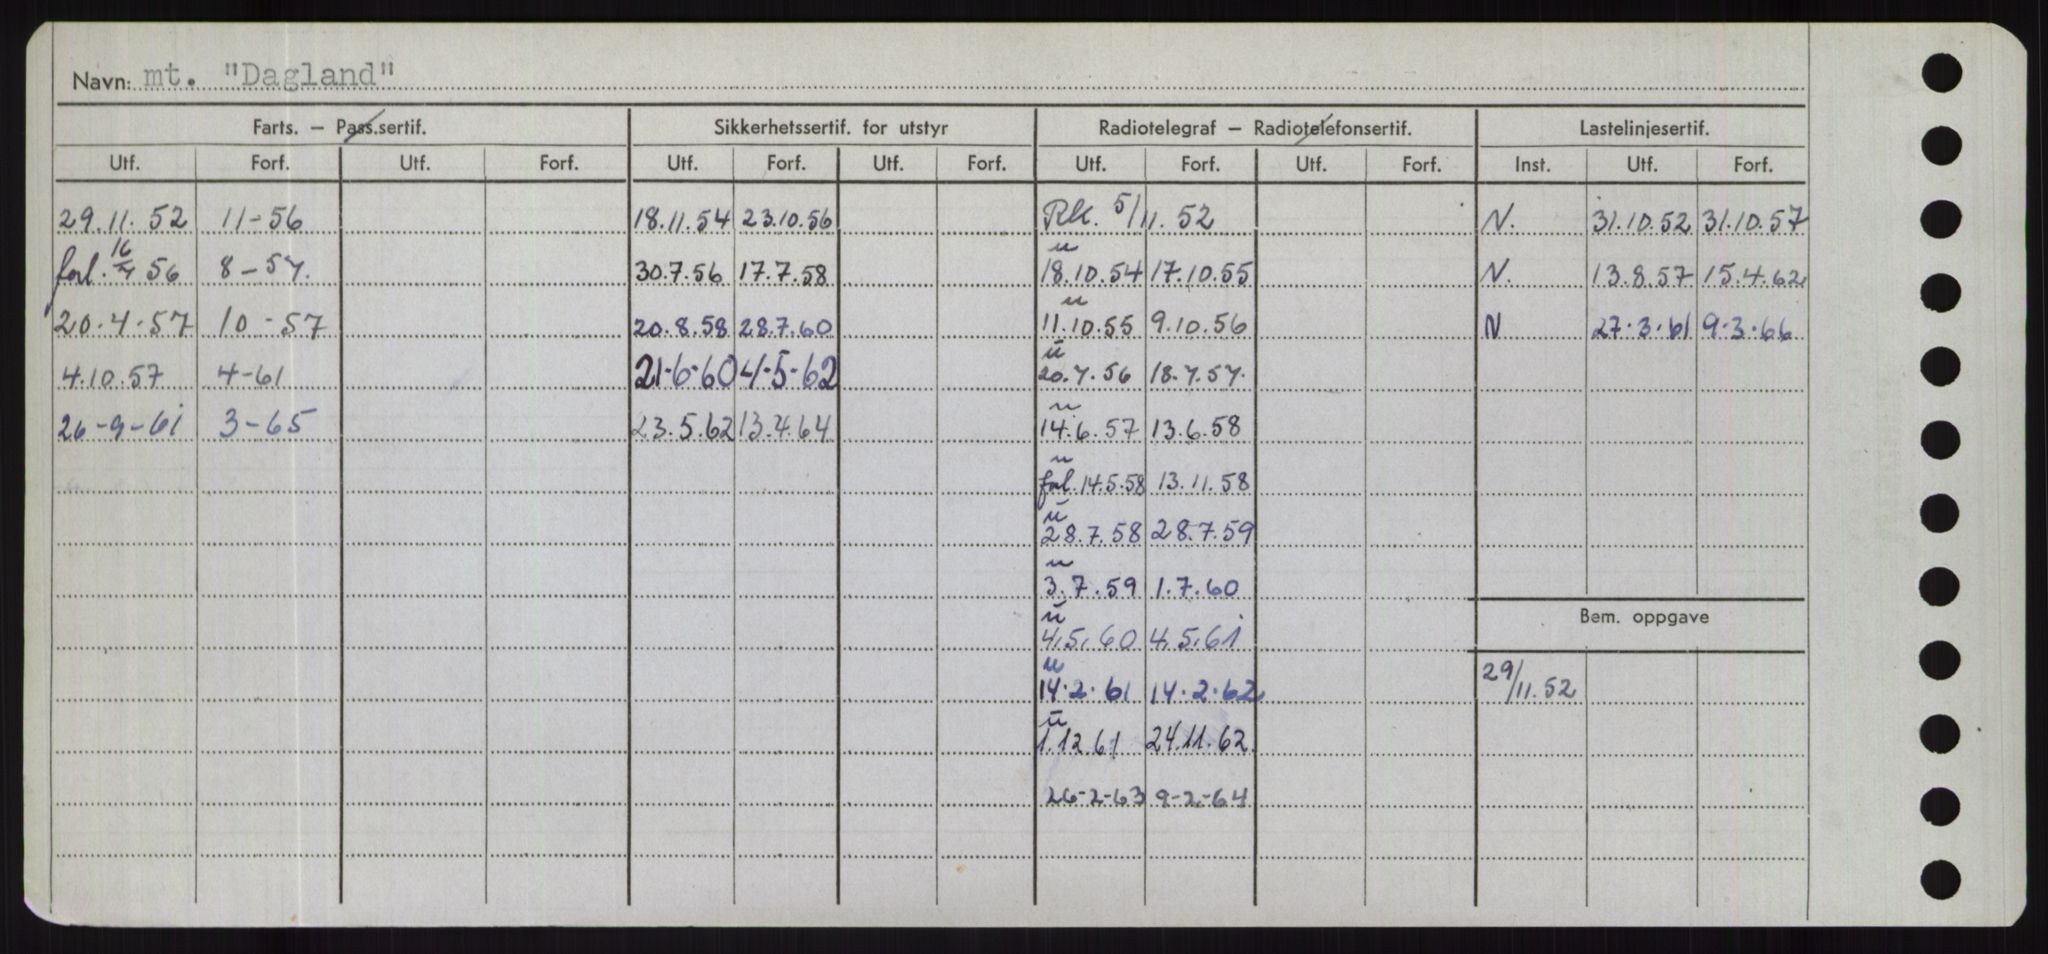 Navn: mt. "Dagland"
Farts. – Pass.sertif. Sikkerhetssertif. for utstyr Radiotelegraf – Radiotelefonsertif. Lastelinjesertif.
Utf. Forf. Utf. Forf. Utf. Forf. Utf. Forf. Utf. Forf. Utf. Forf. Inst. Utf. Forf.
29.11.52 11-56 18.11.54 23.10.56 RK. 5/11.52 N. 31.10.52 31.10.57
u
forl. 16/7 56 8-57. 30.7.56 17.7.58 18.10.54 17.10.55 N. 13.8.57 15.4.62
u
20.4.57 10-57 20.8.58 28.7.60 11.10.55 9.10.56 N 27.3.61 9.3.66
u
4.10.57 4-61 21-6-60 4-5-62 20.7.56 18.7.57.
u
26-9-61 3-65 23.5.62 13.4.64 14.6.57 13.6.58
u
forl. 14.5.58 13.11.58
u
28.7.58 28.7.59
u
3.7.59 1.7.60
u Bem. oppgave
4.5.60 4.5.61
u
14.2.61 14.2.62 29/11.52
u
1.12 61 24.11.62
26-2-63 9-2-64